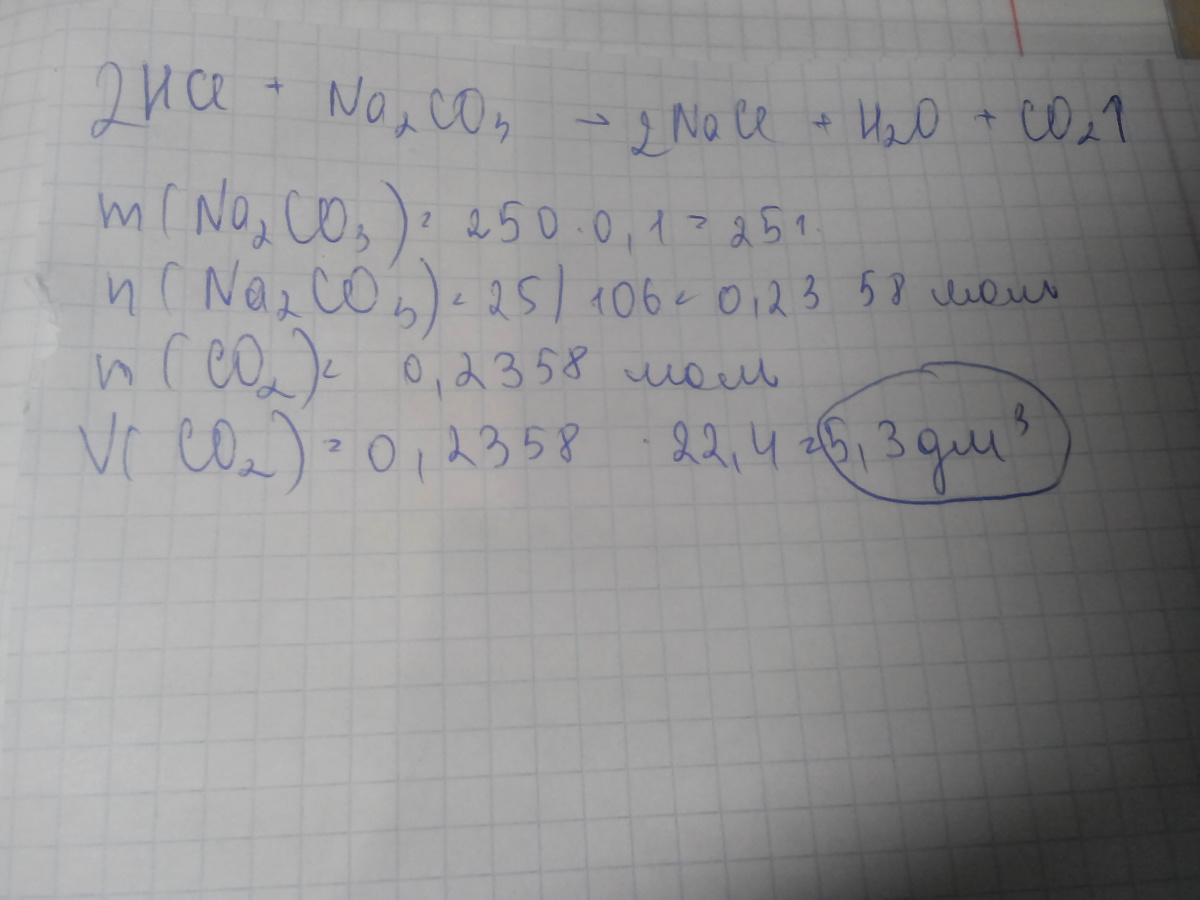 2HCl + Na₂CO₃ → 2NaCl + H₂O + CO₂↑
m(Na₂CO₃) = 250 · 0,1 = 25г.
n(Na₂CO₃) = 25/106 = 0,2358 моль
n(CO₂) = 0,2358 моль
V(CO₂) = 0,2358 · 22,4 = 5,3 дм³